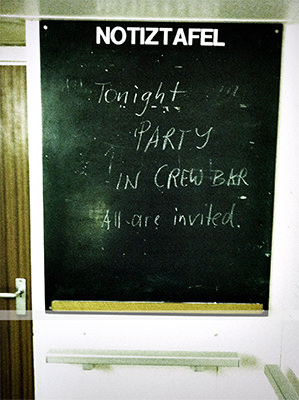 NOTIZTAFEL
Tonight
PARTY
IN CREW BAR
All are invited.